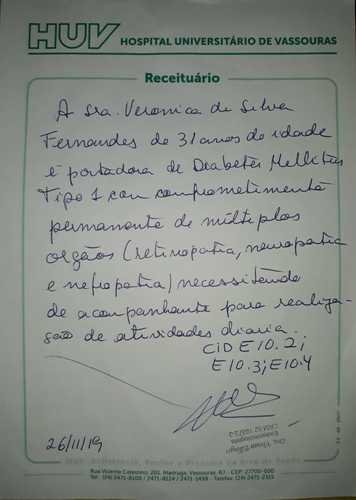 HUV HOSPITAL UNIVERSITÁRIO DE VASSOURAS
Receituário
A sra. Veronica de Silva
Fernandes de 31 anos de idade
é portadora de Diabetes Mellitus
Tipo 1 com comprometimento
permanente de múltiplos
orgãos (retinopatia, neuropatia
e nefropatia) necessitando
de acompanhante para realiza-
ção de atividades diaria.
CiD E10.2;
E10.3; E10.4
26/11/19
Rua Vicente Celestino, 201, Madruga, Vassouras, RJ - CEP: 27700-000